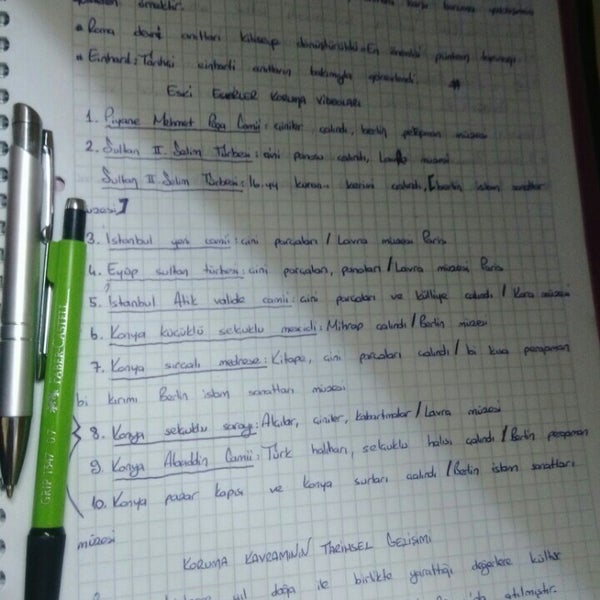 örnektir.
* Roma devri anıtları kiliseye dönüştürüldü. En önemli
* Einhard: Tarihçi anıtların bakımıyla görevlendi.
ESKİ ESERLER KORUMA VİDEOLARI
1. Piyane Mehmet Paşa Camii: çiniler çalındı, berlin pergaman müzesi
2. Sultan II. Salim Türbesi: çini panosu çalındı, müzesi
Sultan II. Selim Türbesi: 16. yy kuran-ı kerimi çalındı, [berlin islam sanatlar
müzesi]
3. İstanbul yeni camii: çini parçaları / Lavra müzesi Paris
4. Eyüp sultan türbesi: çini parçaları, panoları / Lavra müzesi Paris
5. İstanbul Atik valide camii: çini parçaları ve külliye çalındı / müzesi
6. Konya küçüklü selçuklu mescidi: Mihrap çalındı / Berlin müzesi
7. Konya sırçalı medrese: Kitape, çini parçaları çalındı / bi kısa pergamon
bi kırımı Berlin islam sanatları müzesi
8. Konya selçuklu sarayı: Alçılar, çiniler, kabartmalar / Lavra müzesi
9. Konya Alaaddin Camii: Türk halıları, selçuklu halısı çalındı / Berlin pergaman
10. Konya pazar kapısı ve Konya surları çalındı / Berlin islam sanatları
müzesi
KORUMA KAVRAMININ TARİHSEL GELİŞİMİ
doğa ile birlikte yarattığı değerlere kültür
atılmıştır.
GRIP 1347 0.7 FABER-CASTELL